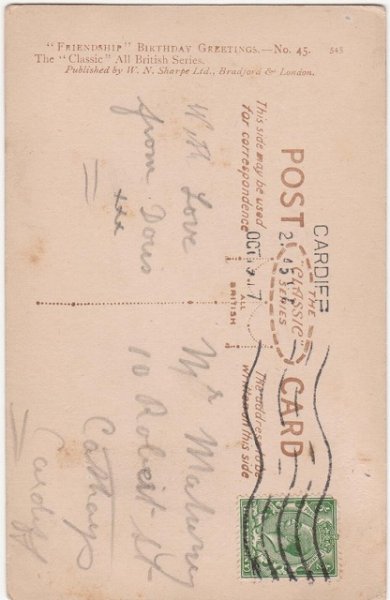 "FRIENDSHIP" BIRTHDAY GREETINGS.—No. 45. 545
The "Classic" All British Series.
Published by W. N. Sharpe Ltd., Bradford & London.
POST CARD
THE
"CLASSIC"
SERIES
ALL
BRITISH
This side may be used
for correspondence
The address to be
written on this side
CARDIFF
OCT 17
With Love
from Doris
xxx
Mr
10 Robert St
Cathays
Cardiff